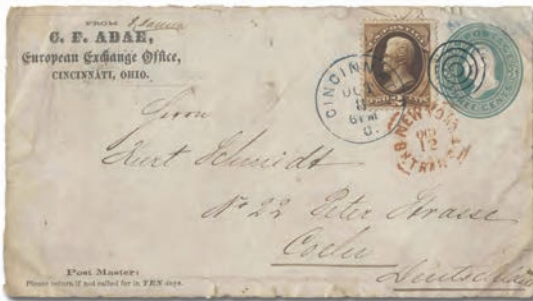 FROM
C. F. ADAE,
European Exchange Office,
CINCINNATI, OHIO.
CINCINN
6 PM
O.
NEW YORK
OCT
12
TRANSIT
Herrn
Kurt Schmidt
No 22 Peter Strasse
Coeln
Deutschland
Post Master:
Please return if not called for in TEN days.